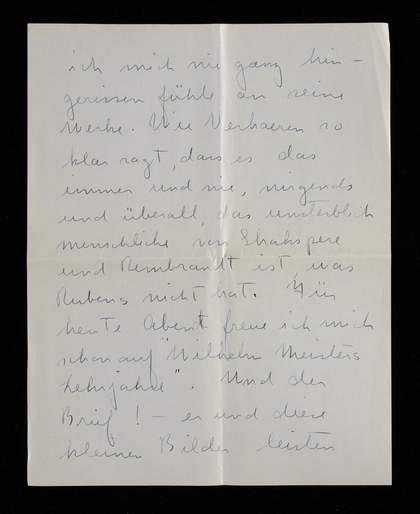 ich mich nie ganz hin-
gerissen fühle an seine
Werke. Wie Verhaeren so
klar sagt, dass es das
immer und nie, nirgends
und überall, das unsterblich
menschliche von Shakspere
und Rembrandt ist, was
Rubens nicht hat. Für
heute Abent freue ich mich
schon auf "Wilhelm Meisters
Lehrjahre". Und der
Brief! – er und diese
kleinen Bilder leisten